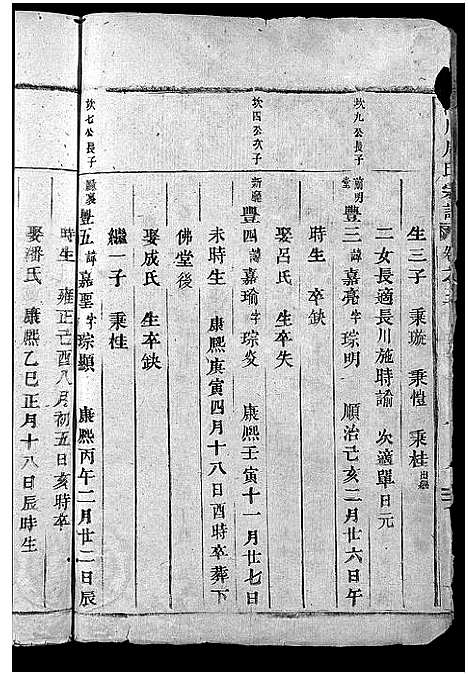 周氏宗譜
生三子 秉璇 秉愷 秉桂出繼
二女長適長川施時諭 次適單日元
坎九公長子
前明堂
豐三諱嘉亮字琮明 順治己亥二月廿六日午
時生 卒缺
娶呂氏 生卒失
坎四公次子
新廳
豐四諱嘉瑜字琮炎 康熙壬寅十一月廿七日
未時生 康熙庚寅四月十八日酉時卒葬下
佛堂後
娶成氏 生卒缺
繼一子 秉桂
坎七公長子
豐五諱嘉聖字琮顯 康熙丙午二月廿二日辰
時生 雍正己酉八月初五日亥時卒
娶潘氏 康熙乙巳正月十八日辰時生